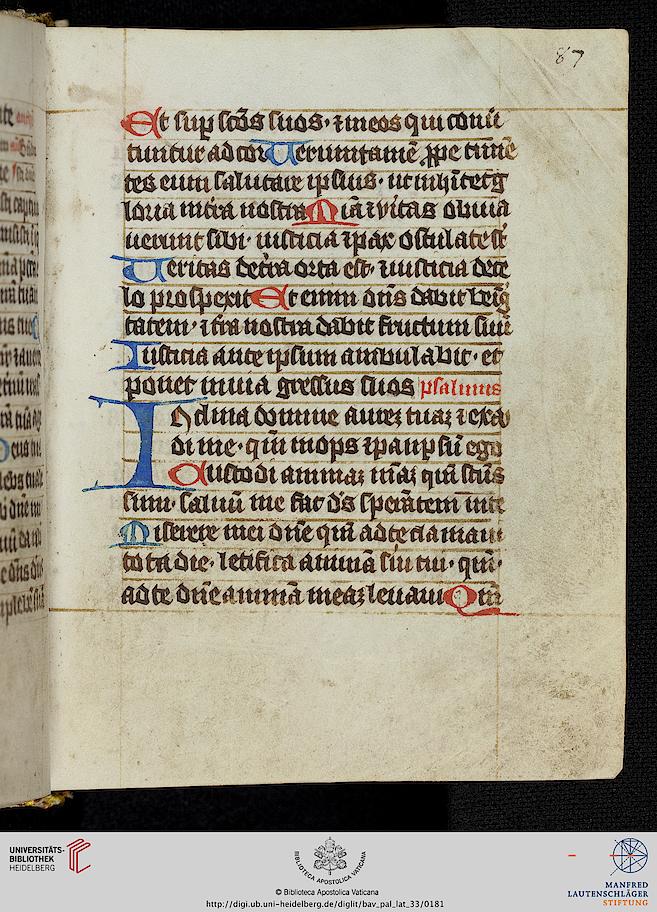 87
Et sup sc̄os suos · ⁊ meos qui conū
tuntur ad cor Uerumtamē ꝓpe timē
tes eum salutare ipsius · ut inhītet g
loria in tra nostra Mīa ⁊ vitas obuia
uerunt sibi · iusticia ⁊ pax osculate st̄
Ueritas de tr̄a orta est · ⁊ iusticia de ce
lo prospexit Et enim dn̄s dabit beīg
tatem · ⁊ tr̄a nostra dabit fructum suū
Iusticia ante ipsum ambulabit · et
ponet in uia gressus suos psalmus
Inclina domine aureꝫ tuaꝫ ⁊ exau
di me · qm̄ inops ⁊ paup sū ego
Custodi animaꝫ meaꝫ qm̄ sc̄us
sum · saluū me fac ds̄ sperātem in te
Miserere mei dn̄e qm̄ ad te clamaui
tota die · letifica animā sui tui · qm̄ ·
ad te dn̄e animā meaꝫ leuaui Qm̄
UNIVERSITÄTS-
BIBLIOTHEK
HEIDELBERG
BIBLIOTECA APOSTOLICA VATICANA
© Biblioteca Apostolica Vaticana
http://digi.ub.uni-heidelberg.de/diglit/bav_pal_lat_33/0181
MANFRED
LAUTENSCHLÄGER
STIFTUNG